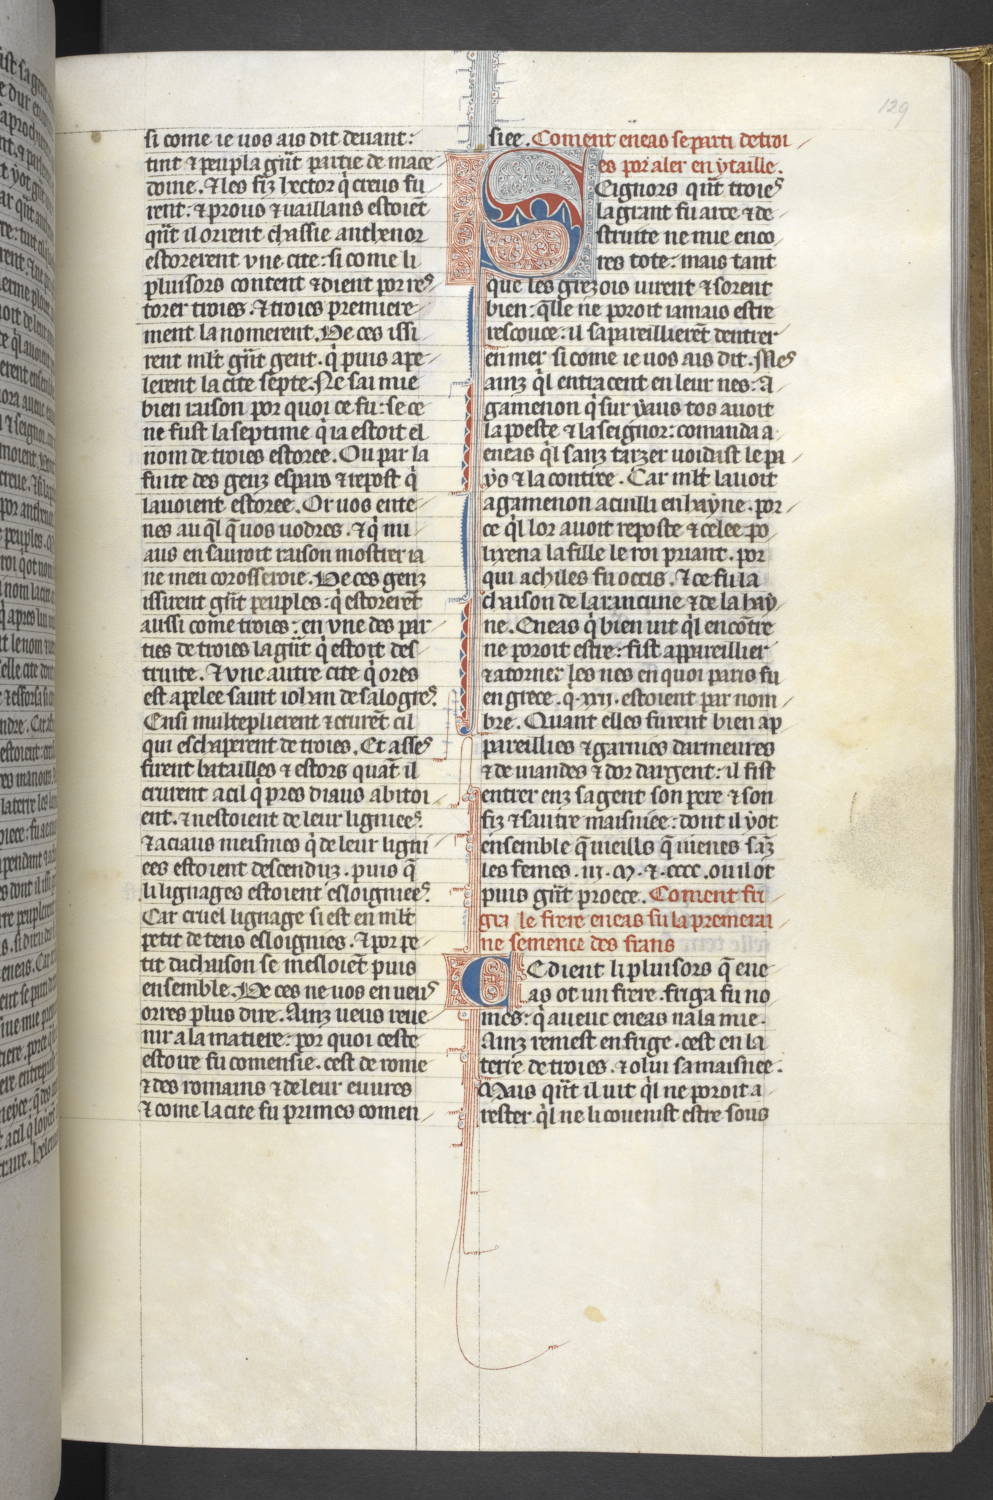 129
si come ie uos ais dit deuant:
tint ⁊ peupla gñt partie de mace
doine. ⁊ les fiz hector q̇ creus fu
rent: ⁊ prous ⁊ uaillans estoiẽt
qñt il orrent chassie anthenor
estorerent vne cite: si come li
pluisors content ⁊ dient por res
torer troies. ⁊ troies premiere
ment la nomerent. De ces issi
rent ml̃t gñt gent. q̇ puis ape
lerent la cite septe. Ne sai mie
bien raison por quoi ce fu: se ce
ne fust la septime q̇ ia estoit el
nom de troies estoree. Ou par la
fuite des genz espars ⁊ repost q̇
lauoient estoree. Or uos ente
nes au q̇l q̃ uos uodres. ⁊ q̇ mi
aus en sauroit raison mostrer ia
ne men corosseroie. De ces genz
issirent gñt peuples: q̇ estorerẽt
aussi come troies: en vne des par
ties de troies la gñt q̇ estoit des
truite. ⁊ vne autre cite q̇ ores
est apelee saint iohan de salogres.
Ensi multeplierent ⁊ crurẽt cil
qui eschaperent de troies. Et asses
firent batailles ⁊ estors quãt il
crurent a cil q̇ pres diaus abitoi
ent. ⁊ nestoient de leur lignees.
⁊ a ciaus meismes q̇ de leur ligni
ees estoient descenduz. puis q̃
li lignages estoient esloigniees.
Car cruel lignage si est en ml̃t
petit de tens esloignies. ⁊ por pe
tit dachaison se mesloiẽt puis
ensemble. De ces ne uos en ueus
orres plus dire. Ainz ueus reue
nir a la matiere: por quoi ceste
estoire fu comensie. cest de rome
⁊ des romains ⁊ de leur euures
⁊ come la cite fu primes comen
siee. Coment eneas se parti de troi
es por aler en ytaille.
SEignors qñt troies
la grant fu arce ⁊ de
struite ne mie enco
res tote: mais tant
que les grezois uirent ⁊ sorent
bien: q̃lle ne poroit iamais estre
rescouce: il sapareillierẽt dentrer
en mer si come ie uos ais dit. Mes
ainz q̇l entracent en leur nes: A
gamenon q̇ sur yaus tos auoit
la poeste ⁊ la seignor: comanda a
eneas q̇l sanz tarzer uoidast le pa
ys ⁊ la contree. Car ml̃t lauoit
agamenon acuilli en hayne. por
ce q̇l lor auoit reposte ⁊ celee po
lixena la fille le roi priant. por
qui achiles fu occis. ⁊ ce fu la
chaison de la rancune ⁊ de la hay
ne. Eneas q̇ bien uit q̇l encõtre
ne poroit estre: fist appareillier
⁊ atorner les nes en quoi paris fu
en grece. q̇ .xxii. estoient par nom
bre. Quant elles furent bien ap
pareillies ⁊ garnies darmeures
⁊ de uiandes ⁊ dor dargent: il fist
entrer enz sa gent son pere ⁊ son
fiz ⁊ sautre maisniee: dont il yot
ensemble q̃ uieills q̃ uienes sãz
les femes .iii. m. ⁊ .cccc. ou il ot
puis gñt proece. Coment fri
gia le frere eneas fu la premerai
ne semence des frans
CE dient li pluisors q̃ ene
as ot un frere. friga fu no
mes: q̇ aueuc eneas nala mie.
Ainz remest en frige. cest en la
terre de troies. ⁊ o lui sa maisniee.
Mais qñt il uit q̇l ne poroit a
rester q̇l ne li couenist estre sous